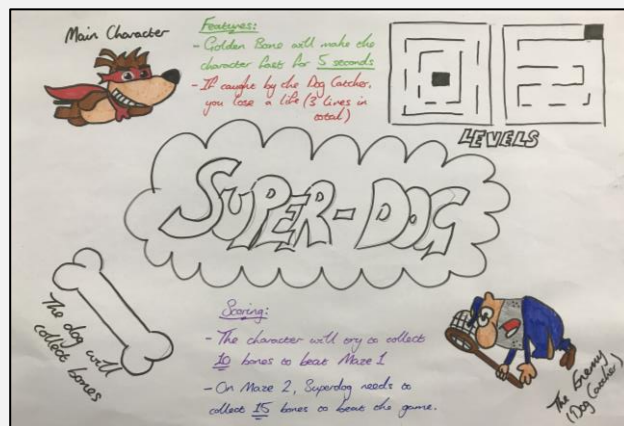 Main Character
Features:
- Golden Bone will make the
character fast for 5 seconds
- If caught by the Dog Catcher,
you lose a life (3 lives in
total)
LEVELS
SUPER-DOG
The dog will
collect bones
Scoring:
- The character will try to collect
10 bones to beat Maze 1
- On Maze 2, Superdog needs to
collect 15 bones to beat the game.
The Enemy
(Dog Catcher)